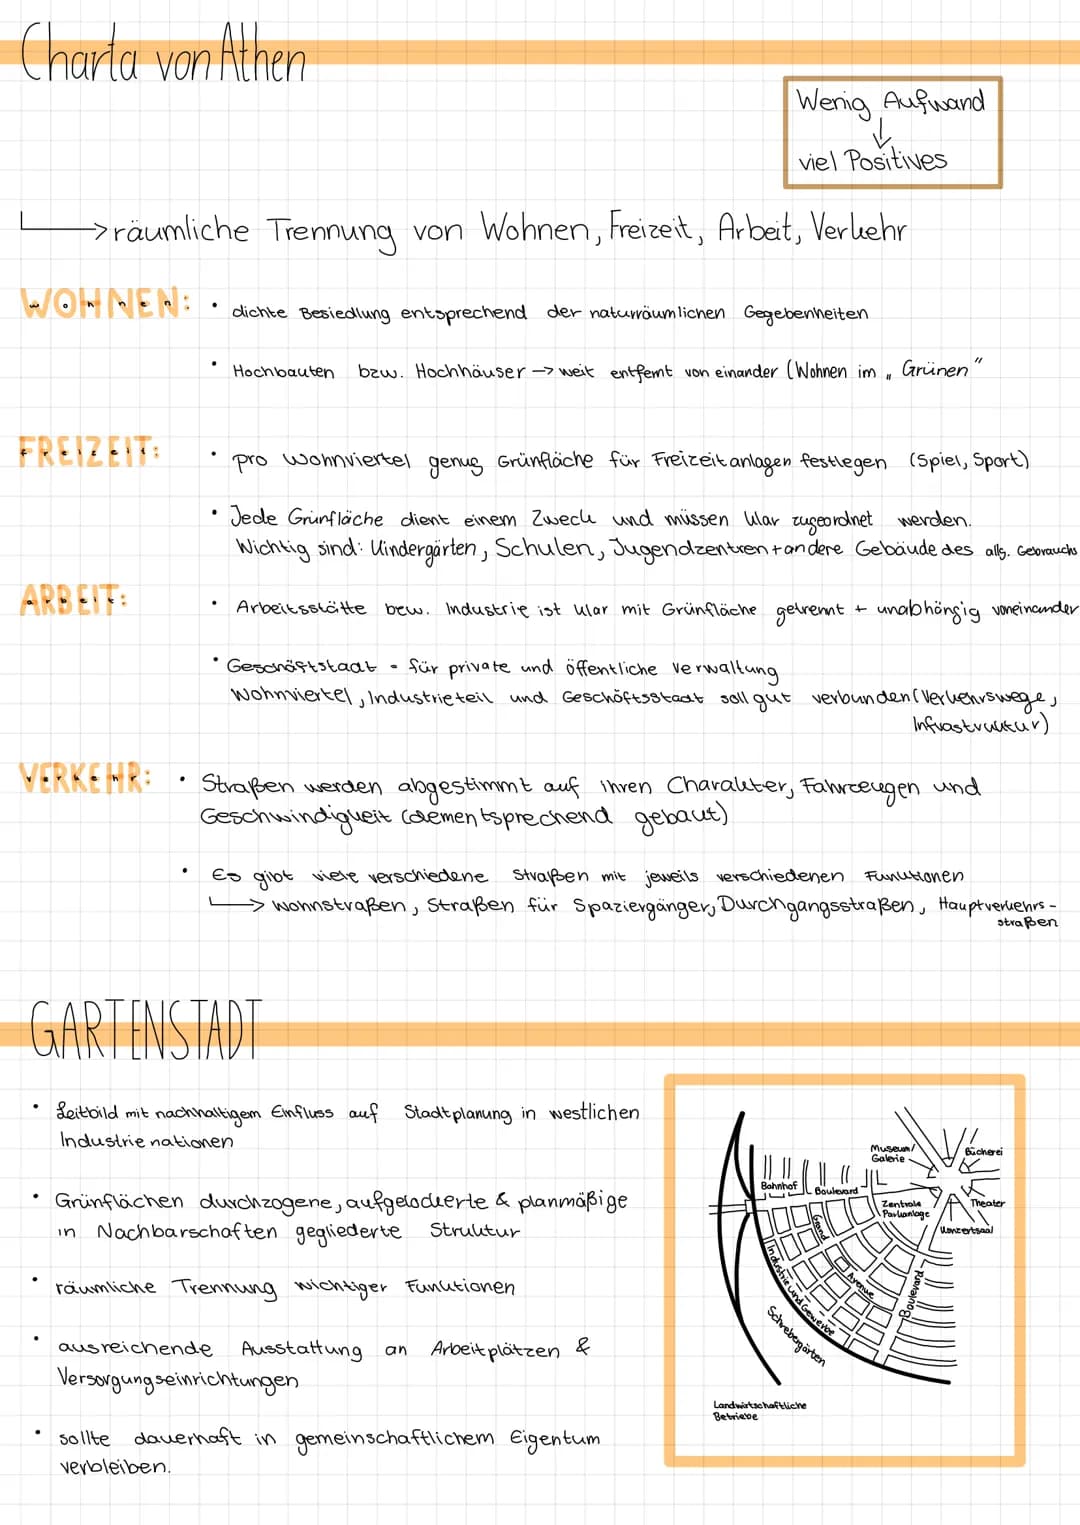 Charta von Athen
Wenig Aufwand
↓
viel Positives
→ räumliche Trennung von Wohnen, Freizeit, Arbeit, Verkehr
WOHNEN:
• dichte Besiedlung entsprechend der naturräumlichen Gegebenheiten
• Hochbauten bzw. Hochhäuser → weit entfernt von einander (Wohnen im „Grünen"
FREIZEIT:
• pro Wohnviertel genug Grünfläche für Freizeitanlagen festlegen (Spiel, Sport)
• Jede Grünfläche dient einem Zweck und müssen klar zugeordnet werden.
Wichtig sind: Kindergärten, Schulen, Jugendzentren + andere Gebäude des allg. Gebrauchs
ARBEIT:
• Arbeitsstätte bzw. Industrie ist klar mit Grünfläche getrennt + unabhängig voneinander
• Geschäftstadt - für private und öffentliche Verwaltung
Wohnviertel, Industrieteil und Geschäftsstadt soll gut verbunden (Verkehrswege,
Infrastruktur)
VERKEHR:
• Straßen werden abgestimmt auf ihren Charakter, Fahrzeugen und
Geschwindigkeit (dementsprechend gebaut)
• Es gibt viele verschiedene Straßen mit jeweils verschiedenen Funktionen
→ Wohnstraßen, Straßen für Spaziergänger, Durchgangsstraßen, Hauptverkehrs-
straßen
GARTENSTADT
• Leitbild mit nachhaltigem Einfluss auf Stadtplanung in westlichen
Industrienationen
• Grünflächen durchzogene, aufgelockerte & planmäßige
in Nachbarschaften gegliederte Struktur
• räumliche Trennung wichtiger Funktionen
• ausreichende Ausstattung an Arbeitplätzen &
Versorgungseinrichtungen
• sollte dauerhaft in gemeinschaftlichem Eigentum
verbleiben.
Museum/
Galerie
Bücherei
Bahnhof
Boulevard
Zentrale
Parkanlage
Theater
Konzertsaal
Grand
Avenue
Boulevard
Industrie und Gewerbe
Schrebergärten
Landwirtschaftliche
Betriebe